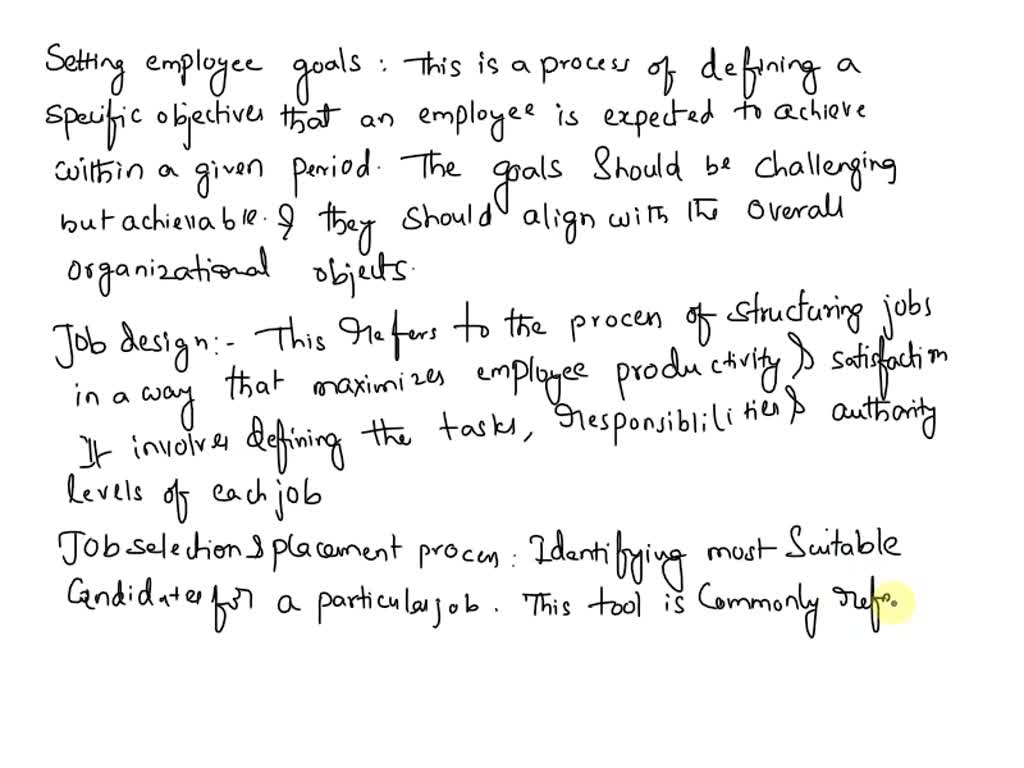 Setting employee goals : This is a process of defining a
specific objectives that an employee is expected to achieve
within a given period. The goals should be challenging
but achievable. & they should align with the overall
organizational objects.
Job design:- This refers to the process of structuring jobs
in a way that maximizes employee productivity & satisfaction
It involves defining the tasks, responsiblilities & authority
levels of each job
Job selection & placement process : Identifying most suitable
candidates for a particular job. This tool is commonly refe